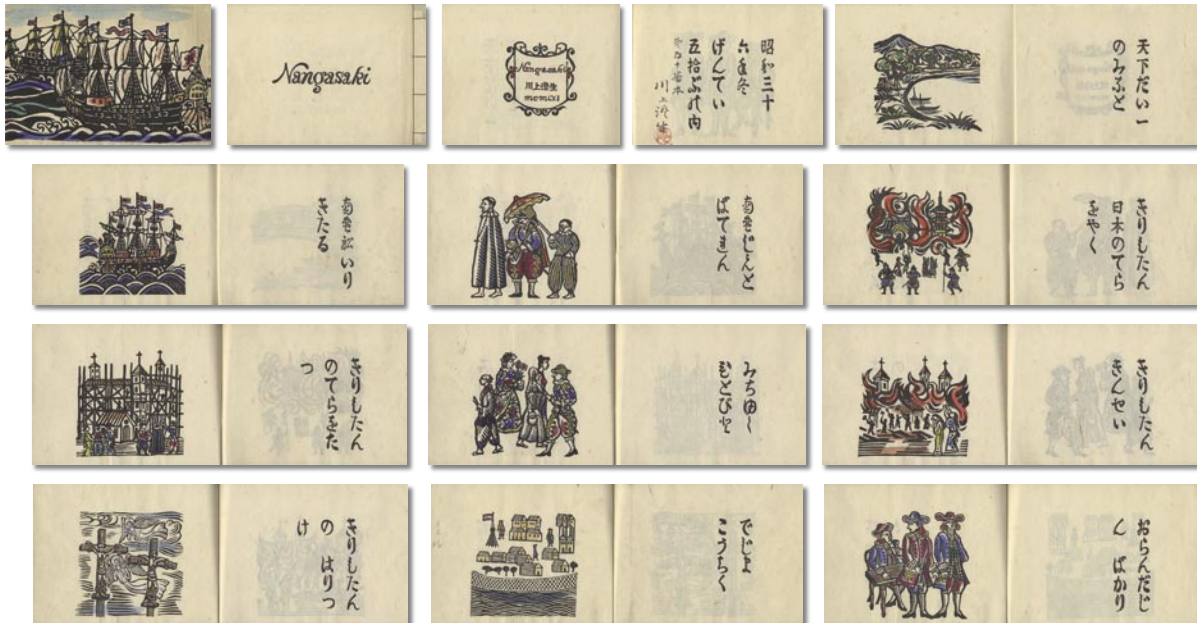 Nangasaki
Nangasaki
川上澄生
mcmlxi
昭和三十
六年冬
げんてい
五拾ぶの内
川上澄生
天下だい一
のみなと
南蛮船いり
きたる
南蛮じんと
ばてれん
きりしたん
日本のてら
をやく
きりしたん
のてらをた
つ
みちゆく
ひとびと
きりしたん
きんせい
きりしたん
の はりつ
け
でじま
こうちく
おらんだじ
ん ばかり